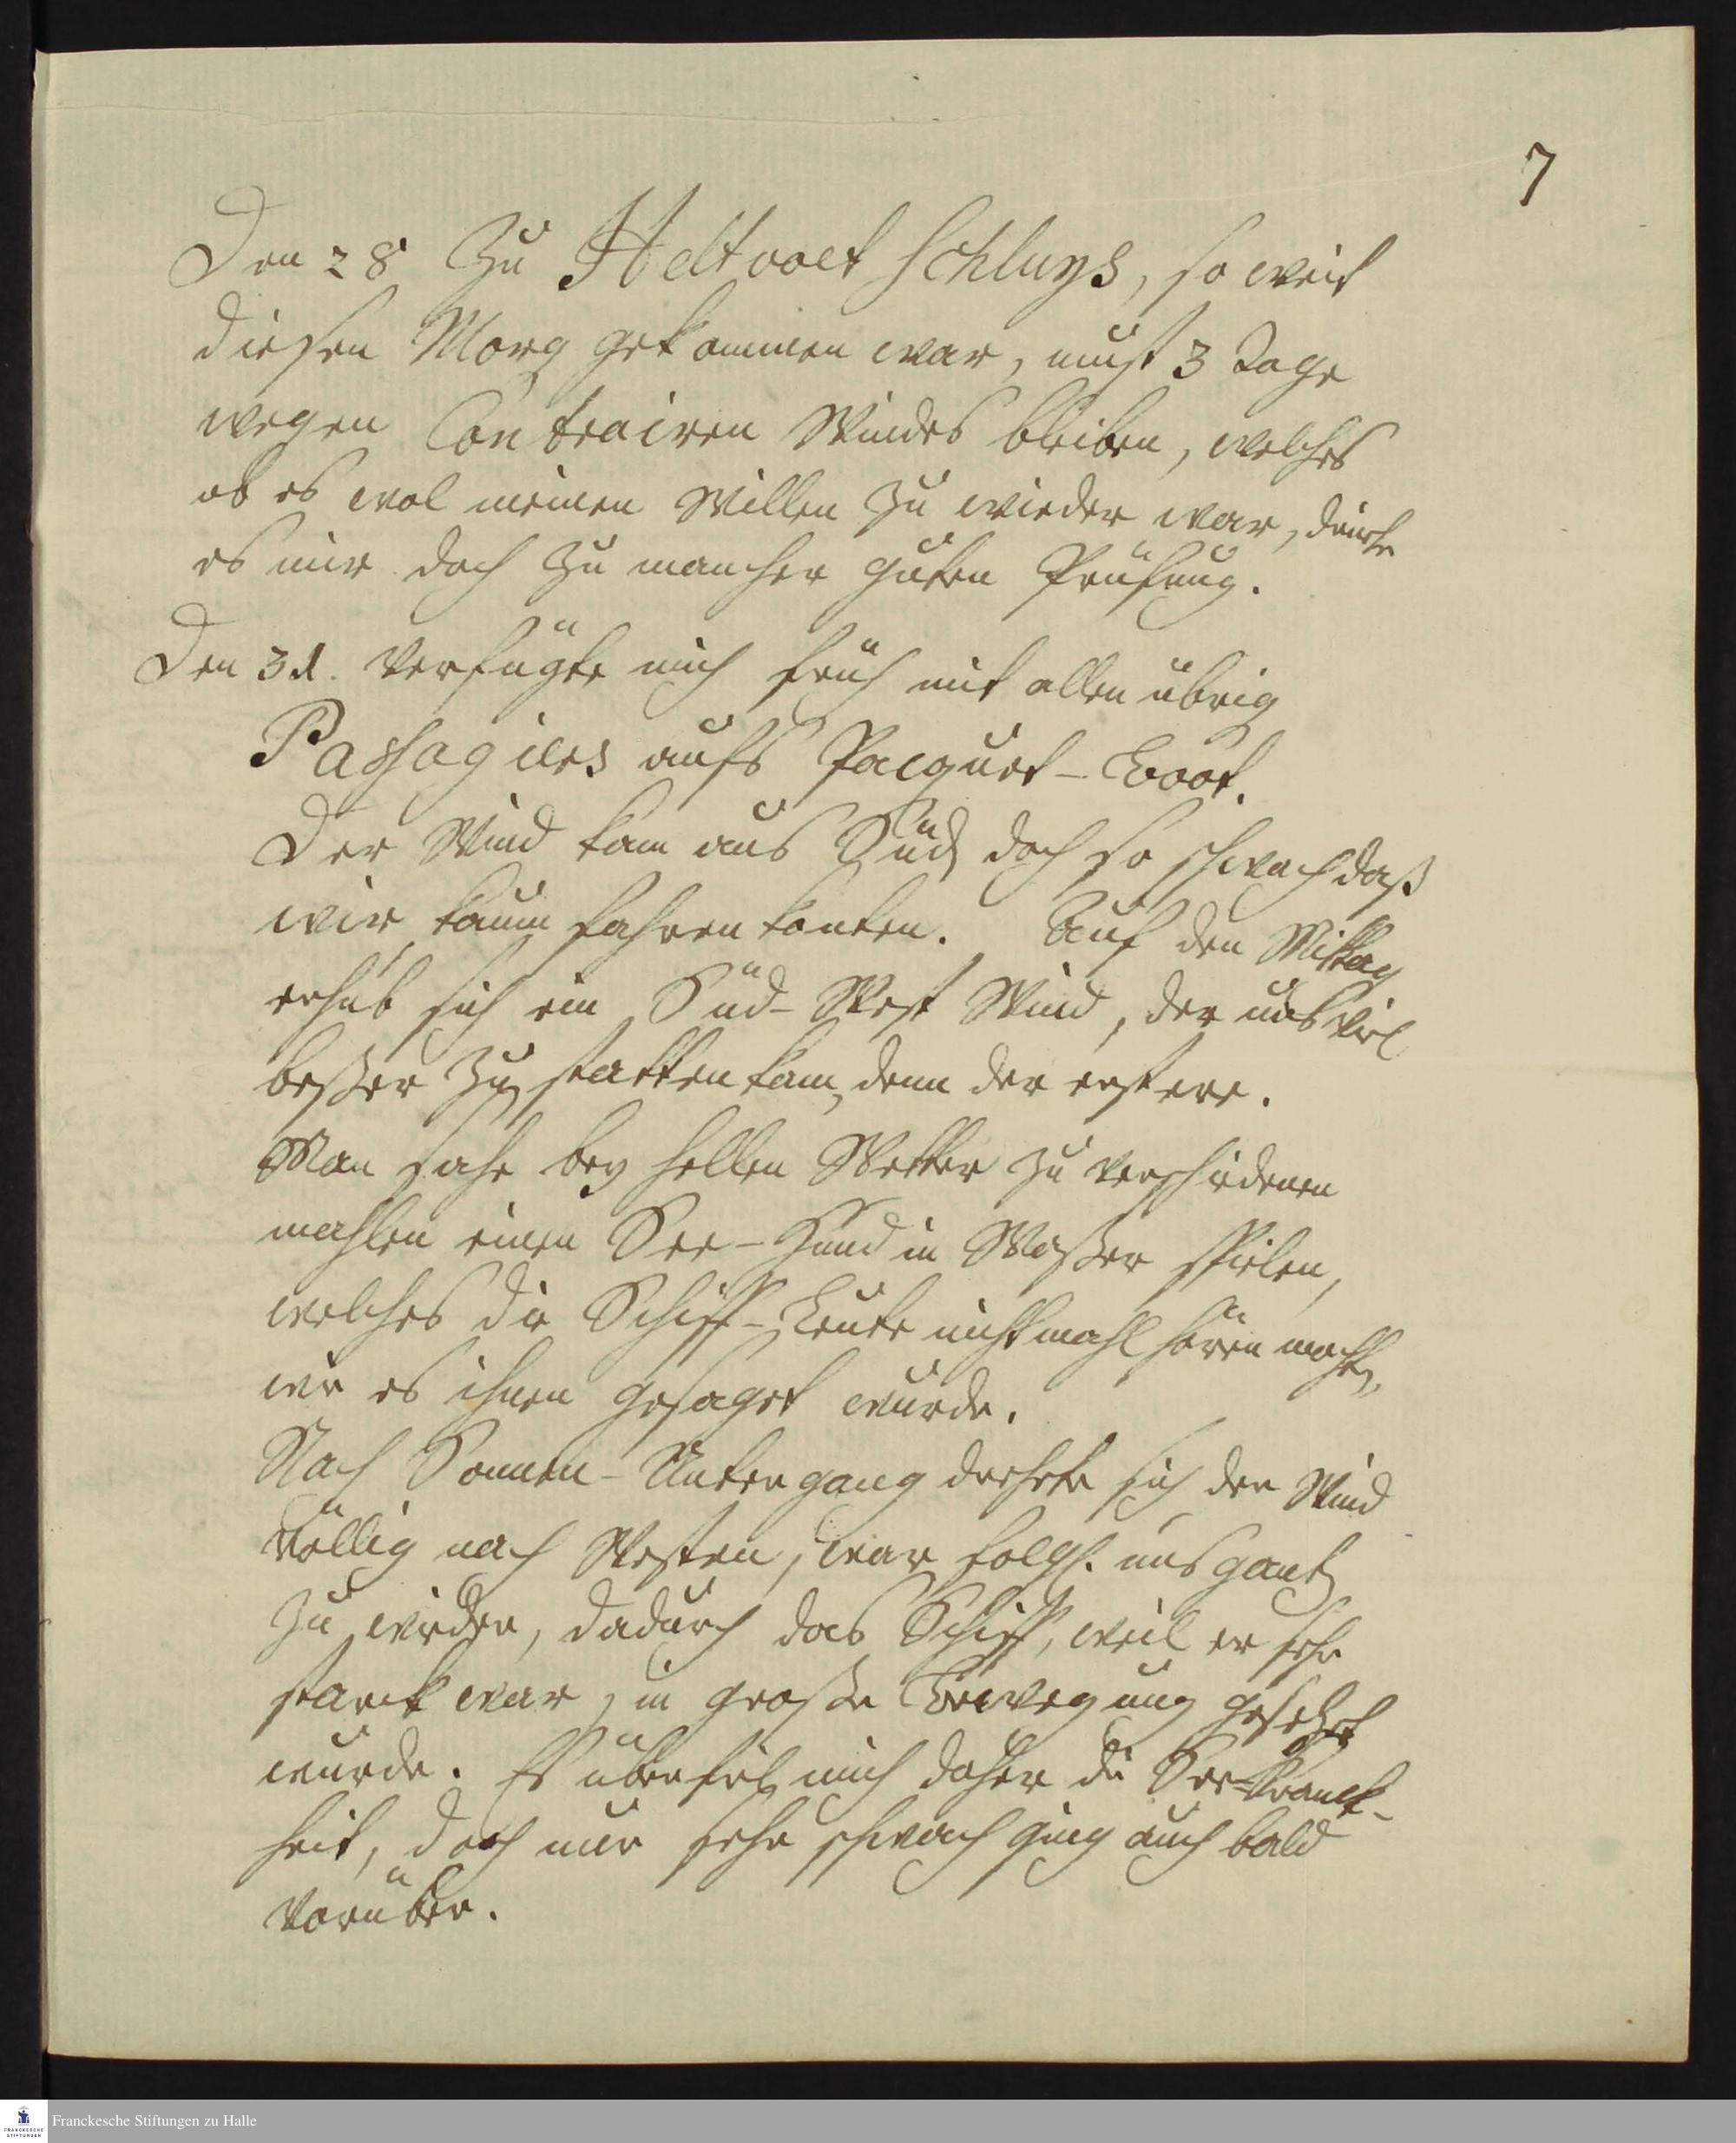 7
Den 28 Zu Heltvoet Schluys, so weit
diesen Morg gekommen war, must 3 Tage
wegen Contrairen Windes bleiben, welches
ob es wol meinen Willen zu wieder war, diente
es mir doch zu mancher guten Prüfung.
Den 31. verfügte mich früh mit allen übrig
Passagiers aufs Pacquet-Boot.
Der Wind kam aus Süd, doch so schwach daß
wir kaum fahren konten. Auf den Mittag
erhub sich ein Süd-West Wind, der uns viel
beßer zu statten kam, denn der erstere.
Man sahe bey hellen Wetter zu verschiedenen
mahlen einen See-Hund in Waßer spielen,
welches die Schiff-Leute nicht mahl hören mochten,
wie es ihnen gesaget wurde.
Nach Sonnen-Untergang drehete sich der Wind
völlig nach Westen, war folgl. uns gantz
zu wieder, dadurch das Schiff, weil er sehr
starck war, in große Bewegung gesetzet
wurde. Es überfiel mich daher die See-Kranck-
heit, doch nur sehr schwach ging auch bald
vorüber.
Franckesche Stiftungen zu Halle
FRANCKESCHE
STIFTUNGEN